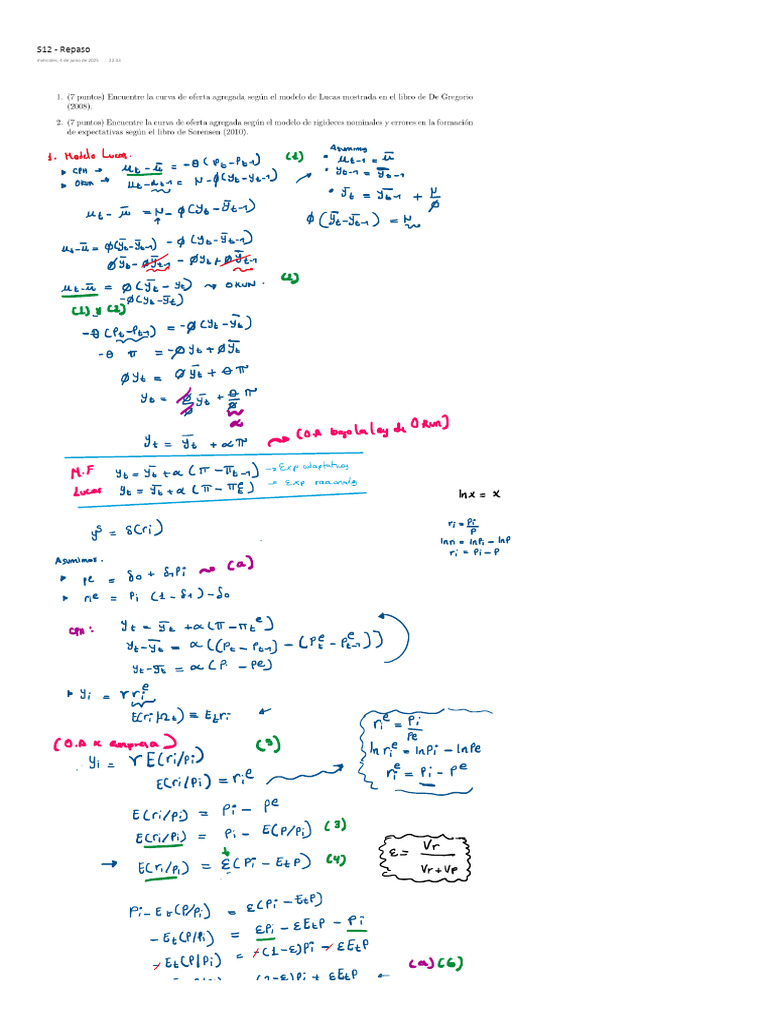 S12 - Repaso
miércoles, 4 de junio de 2025
1. (7 puntos) Encuentre la curva de oferta agregada según el modelo de Lucas mostrada en el libro de De Gregorio
(2008).
2. (7 puntos) Encuentre la curva de oferta agregada según el modelo de rigideces nominales y errores en la formación
de expectativas según el libro de Sorensen (2010).
1. Modelo Lucas.
▸ CPH → μt - μ̄ = -θ(Pt - Pt-1) (1)
▸ OKUN → μt - μt-1 = N - ϕ(yt - yt-1)
Asumimos
• μt-1 = μ̄
• yt-1 = ȳt-1
• ȳt = ȳt-1 + N/ϕ
ϕ(ȳt - ȳt-1) = N
μt - μ̄ = N - ϕ(yt - ȳt-1)
μt - μ̄ = ϕ(ȳt - ȳt-1) - ϕ(yt - ȳt-1)
ϕȳt - ϕȳt-1 - ϕyt + ϕȳt-1
μt - μ̄ = ϕ(ȳt - yt) ⇝ OKUN. (2)
-ϕ(yt - ȳt)
(1) y (2)
-θ(Pt - Pt-1) = -ϕ(yt - ȳt)
-θ π = -ϕyt + ϕȳt
ϕyt = ϕȳt + θπ
yt = ϕ/ϕ ȳt + θ/ϕ π
α
yt = ȳt + απ ⇝ (O.A bajo la ley de OKun)
M.F yt = ȳt + α(π - πt-1) → Exp adaptativas
Lucas yt = ȳt + α(π - πte) → Exp racionales
ln x = x
yˢ = δ(ri)
ri = Pi/P
ln ri = ln Pi - ln P
ri = Pi - P
Asumimos.
▸ Pe = δ0 + δ1Pi ⇝ (a)
▸ rie = Pi (1 - δ1) - δ0
CPH: yt = ȳt + α(π - πte)
yt - ȳt = α((Pt - Pt-1) - (Pte - Pt-1e))
yt - ȳt = α(P - Pe)
▸ yi = γ rie
E(ri/Ωt) = Et ri ←
(O.A x empresa) (3)
yi = γ E(ri/Pi)
E(ri/Pi) = rie
rie = Pi/Pe
ln rie = ln Pi - ln Pe
rie = Pi - Pe
E(ri/Pi) = Pi - Pe
E(ri/Pi) = Pi - E(P/Pi) (3)
→ E(ri/Pi) = ε(Pi - EtP) (4)
ε = Vr/(Vr + Vp)
Pi - Et(P/Pi) = ε(Pi - EtP)
-Et(P/Pi) = εPi - εEtP - Pi
-Et(P/Pi) = -(1-ε)Pi - εEtP
(1-ε)Pi + εEtP ← (a)(6)